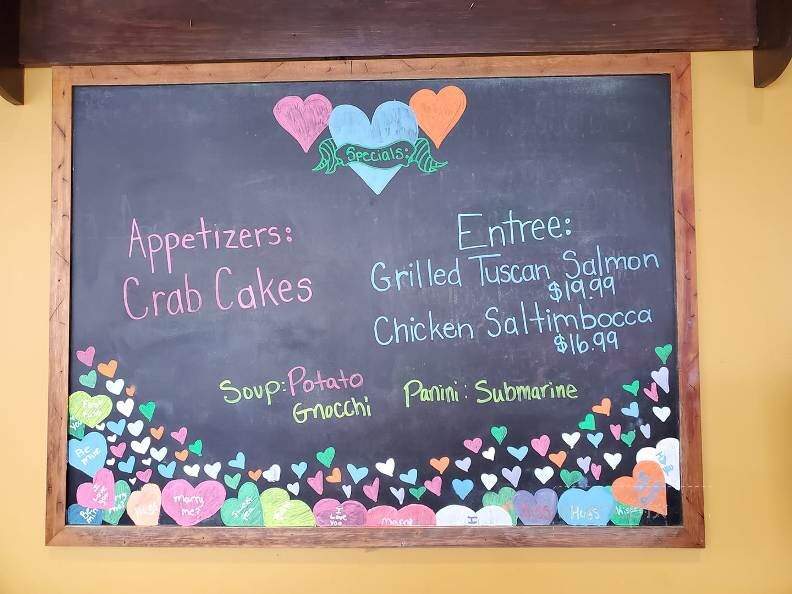 Specials:
Appetizers:
Crab Cakes
Entree:
Grilled Tuscan Salmon
$19.99
Chicken Saltimbocca
$16.99
Soup: Potato
Gnocchi
Panini: Submarine
Be
mine
Marry
me?
I
Love
You
Hugs
Kisses